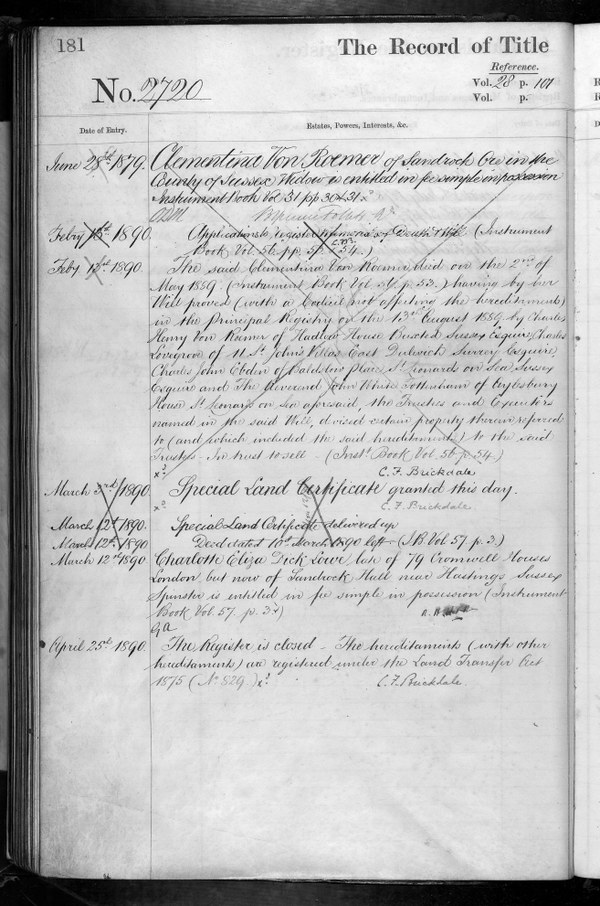 181
The Record of Title
Reference.
No. 2720
Vol. 28 p. 101
Vol. p.
Date of Entry.
Estates, Powers, Interests, &c.
June 28th 1879. Clementina Von Roemer of Sandrock Ore in the
County of Sussex Widow is entitled in fee simple in possession
Instrument Book Vol 31 pp 30 & 31 x?
Febry 1890. Application to register of Death & Will (Instrument
Book Vol. 56 pp. 54.)
Feby 12th 1890. The said Clementina Von Roemer died on the 2nd of
May 1889. (Instrument Book Vol. 56 p. 53.) having by her
Will proved (with a Codicil not affecting the hereditaments)
in the Principal Registry on the 13th August 1889 by Charles
Henry Von Roemer of Hadlow House Buxted Sussex Esquire, Charles
Lovegrove of 11 St. John's Villas East Dulwich Surrey Esquire,
Charles John Ebden of Baldslow place, St. Leonards on Sea, Sussex
Esquire and The Reverend John White Tottenham of Aylesbury
House St. Leonards on Sea aforesaid, the Trustees and Executors
named in the said Will, devised certain property therein referred
to (and which included the said hereditaments) to the said
Trustees - In trust to sell - (Inst. Book Vol. 56 p. 54.)
x? C. F. Brickdale
March 3rd 1890. Special Land Certificate granted this day.
x? C. F. Brickdale.
March 12th 1890. Special Land Certificate delivered up
March 12th 1890 Deed dated 10th March 1890 left - (I B Vol 57 p. 3.)
March 12th 1890 Charlotte Eliza Dick Lowe late of 79 Cromwell Houses
London but now of Sandrock Hall near Hastings Sussex
Spinster is entitled in fee simple in possession (Instrument
Book Vol. 57. p. 3.)
April 25th 1890. The Register is closed - The hereditaments (with other
hereditaments) are registered under the Land Transfer Act
1875 (No 829.) x? C. F. Brickdale.